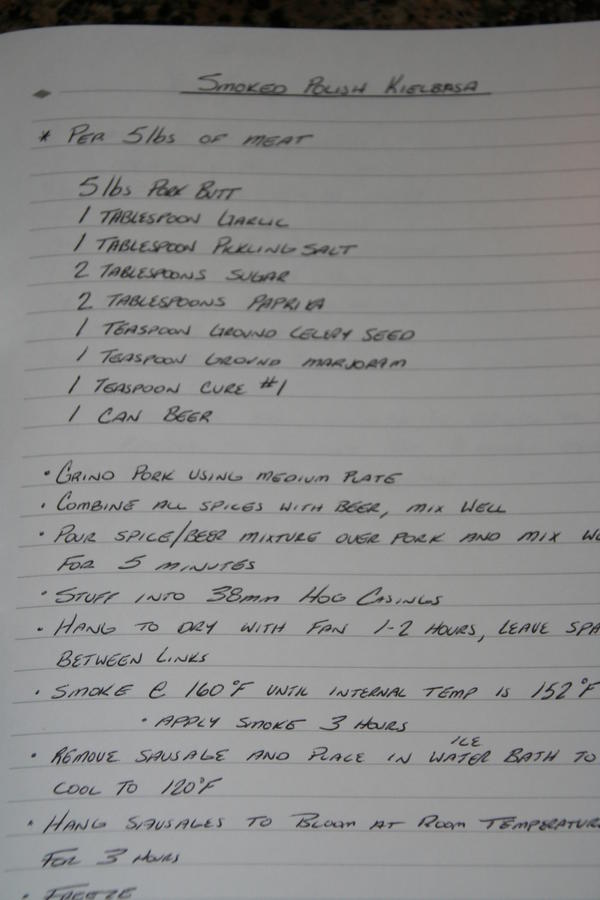 Smoked Polish Kielbasa
* Per 5lbs of meat
5 lbs Pork Butt
1 Tablespoon Garlic
1 Tablespoon Pickling Salt
2 Tablespoons Sugar
2 Tablespoons Paprika
1 Teaspoon Ground Celery Seed
1 Teaspoon Ground Marjoram
1 Teaspoon Cure #1
1 Can Beer
• Grind Pork using medium plate
• Combine all spices with Beer, mix well
• Pour spice/beer mixture over pork and mix
for 5 minutes
• Stuff into 38mm Hog Casings
• Hang to dry with fan 1-2 hours, leave
between links
• Smoke @ 160°F until internal temp is 152°F
• Apply smoke 3 hours
• Remove sausage and place in ice water bath to
cool to 120°F
• Hang sausages to Bloom at Room Temperature
for 3 hours
• Freeze